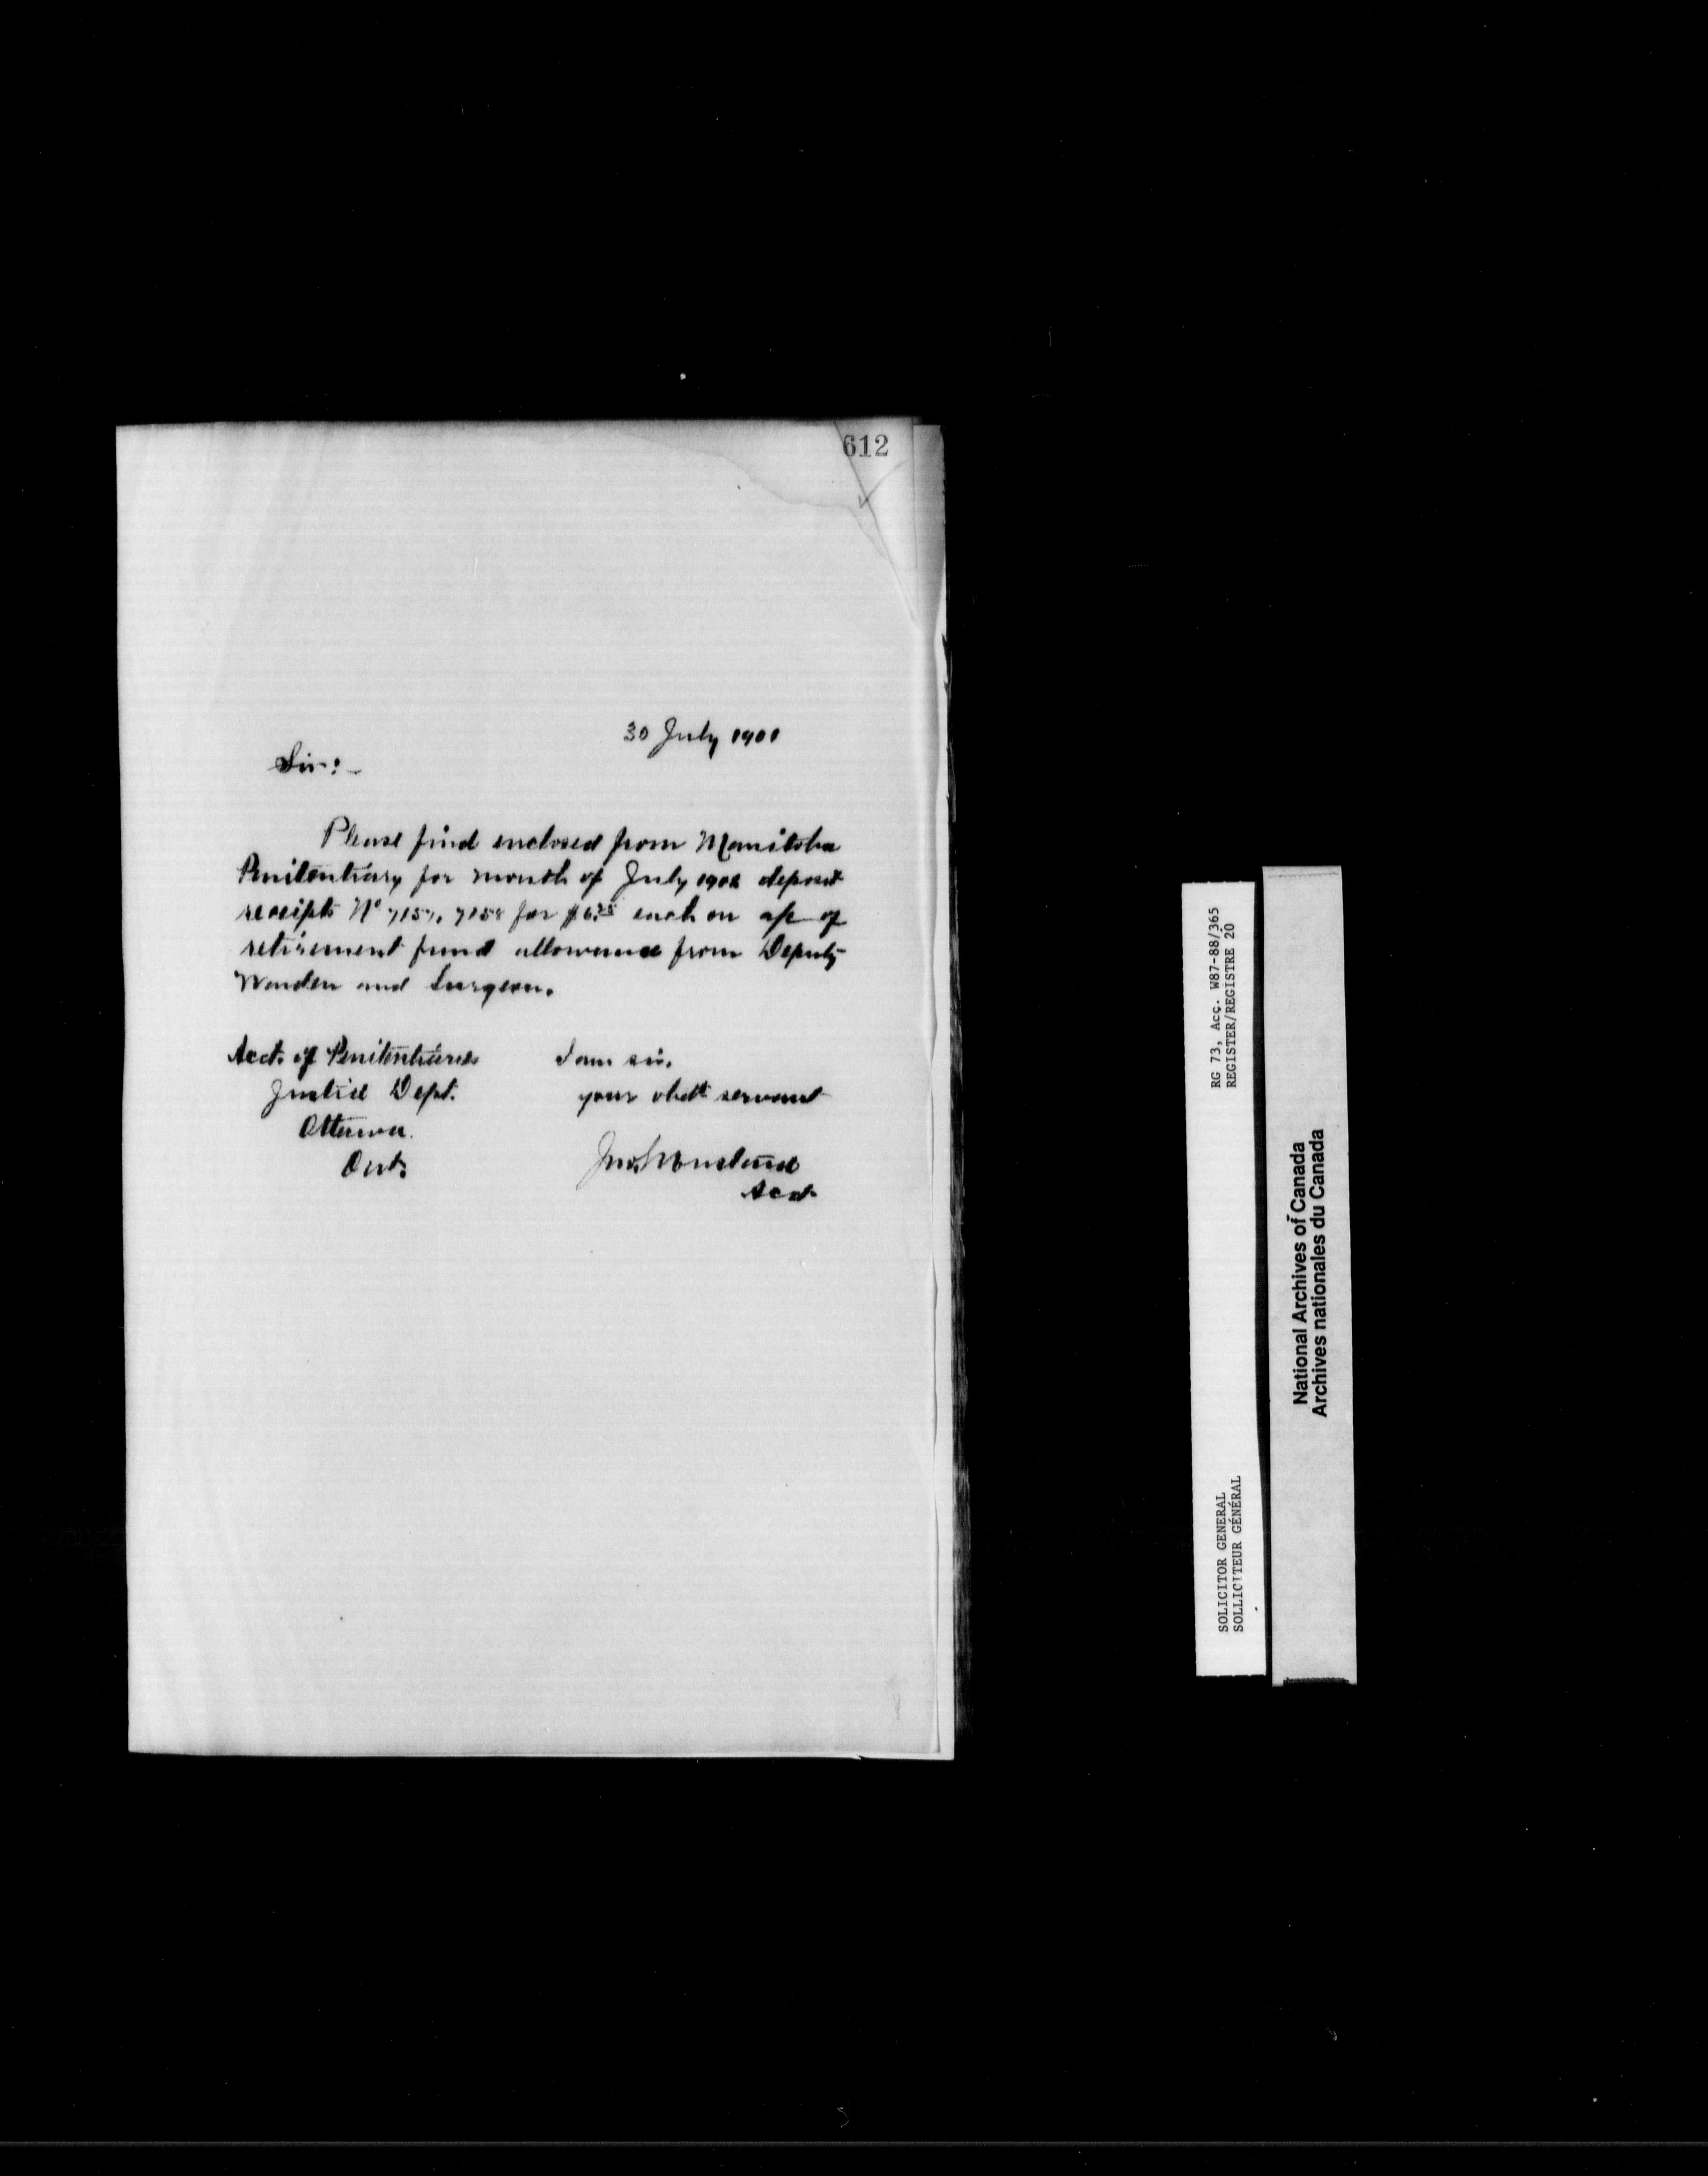 612
30 July 1901
Sir:-
Please find enclosed from Manitoba
Penitentiary for month of July 1901 deposit
receipts No 7157, 7158 for $6.25 each on a/c of
retirement fund allowance from Deputy
Warden and Surgeon.
Acct. of Penitentiaries
Justice Dept.
Ottawa.
Ont.
I am sir,
your obdt servant
Acct.
RG 73, Acc. W87-88/365
REGISTER/REGISTRE 20
SOLICITOR GENERAL
SOLLICITEUR GÉNÉRAL
National Archives of Canada
Archives nationales du Canada